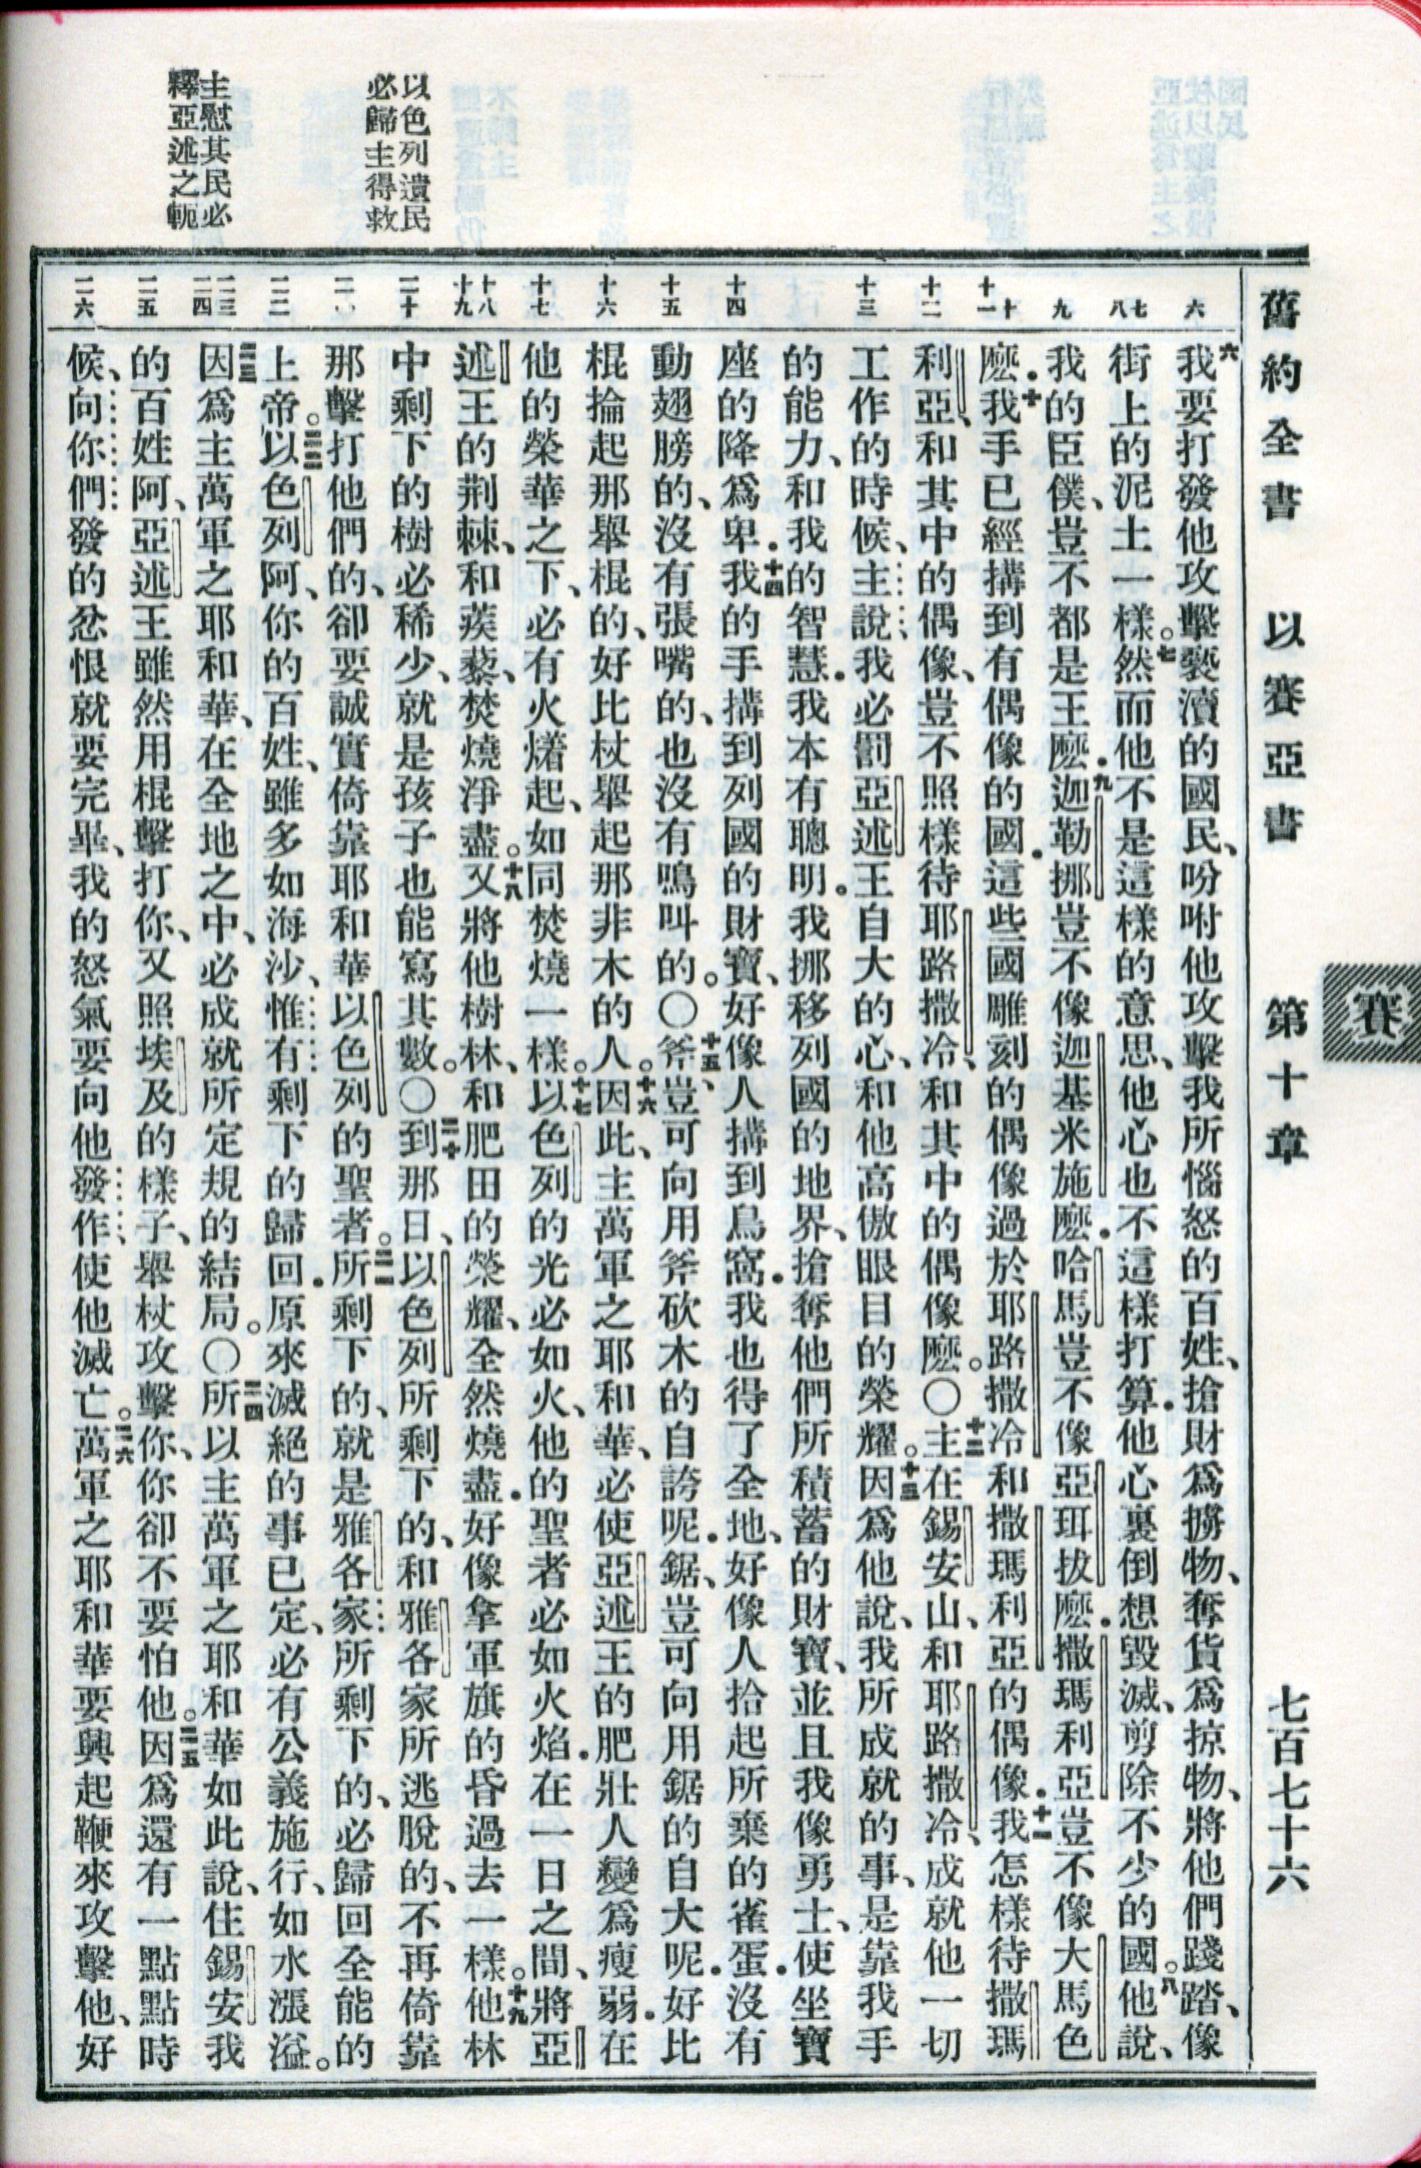 舊約全書 以賽亞書 第十章 七百七十六
賽
以色列遺民
必歸主得救
主慰其民必
釋亞述之軛
六 七 八 九 十 十一 十二 十三 十四 十五 十六 十七 十八 十九 二十 二一 二二 二三 二四 二五 二六
六我要打發他攻擊褻瀆的國民、吩咐他攻擊我所惱怒的百姓、搶財爲擄物、奪貨爲掠物、將他們踐踏、像
街上的泥土一樣。七然而他不是這樣的意思、他心也不這樣打算．他心裏倒想毀滅、剪除不少的國。八他說、
我的臣僕、豈不都是王麽．九迦勒挪豈不像迦基米施麽．哈馬豈不像亞珥拔麽．撒瑪利亞豈不像大馬色
麽．十我手已經搆到有偶像的國．這些國雕刻的偶像過於耶路撒冷和撒瑪利亞的偶像．十一我怎樣待撒瑪
利亞、和其中的偶像、豈不照樣待耶路撒冷、和其中的偶像麽。〇十二主在錫安山、和耶路撒冷、成就他一切
工作的時候、主說、我必罰亞述王自大的心、和他高傲眼目的榮耀。十三因爲他說、我所成就的事、是靠我手
的能力、和我的智慧．我本有聰明。我挪移列國的地界、搶奪他們所積蓄的財寶、並且我像勇士、使坐寶
座的降爲卑．十四我的手搆到列國的財寶、好像人搆到鳥窩．我也得了全地、好像人拾起所棄的雀蛋．沒有
動翅膀的、沒有張嘴的、也沒有鳴叫的。〇十五斧、豈可向用斧砍木的自誇呢．鋸、豈可向用鋸的自大呢．好比
棍掄起那舉棍的、好比杖舉起那非木的人。十六因此、主萬軍之耶和華、必使亞述王的肥壯人變爲瘦弱．在
他的榮華之下、必有火爀起、如同焚燒一樣。十七以色列的光必如火、他的聖者必如火焰．在一日之間、將亞
述王的荆棘、和蒺藜、焚燒淨盡。十八又將他樹林、和肥田的榮耀、全然燒盡．好像拿軍旗的昏過去一樣。十九他林
中剩下的樹必稀少、就是孩子也能寫其數。〇二十到那日、以色列所剩下的、和雅各家所逃脫的、不再倚靠
那擊打他們的、卻要誠實倚靠耶和華以色列的聖者。二一所剩下的、就是雅各家所剩下的、必歸回全能的
上帝。二二以色列阿、你的百姓、雖多如海沙、惟有剩下的歸回．原來滅絕的事已定、必有公義施行、如水漲溢。
二三因爲主萬軍之耶和華、在全地之中、必成就所定規的結局。〇二四所以主萬軍之耶和華如此說、住錫安我
的百姓阿、亞述王雖然用棍擊打你、又照埃及的樣子、舉杖攻擊你、你卻不要怕他。二五因爲還有一點點時
候、向你們發的忿恨就要完畢、我的怒氣要向他發作、使他滅亡。二六萬軍之耶和華要興起鞭來攻擊他、好